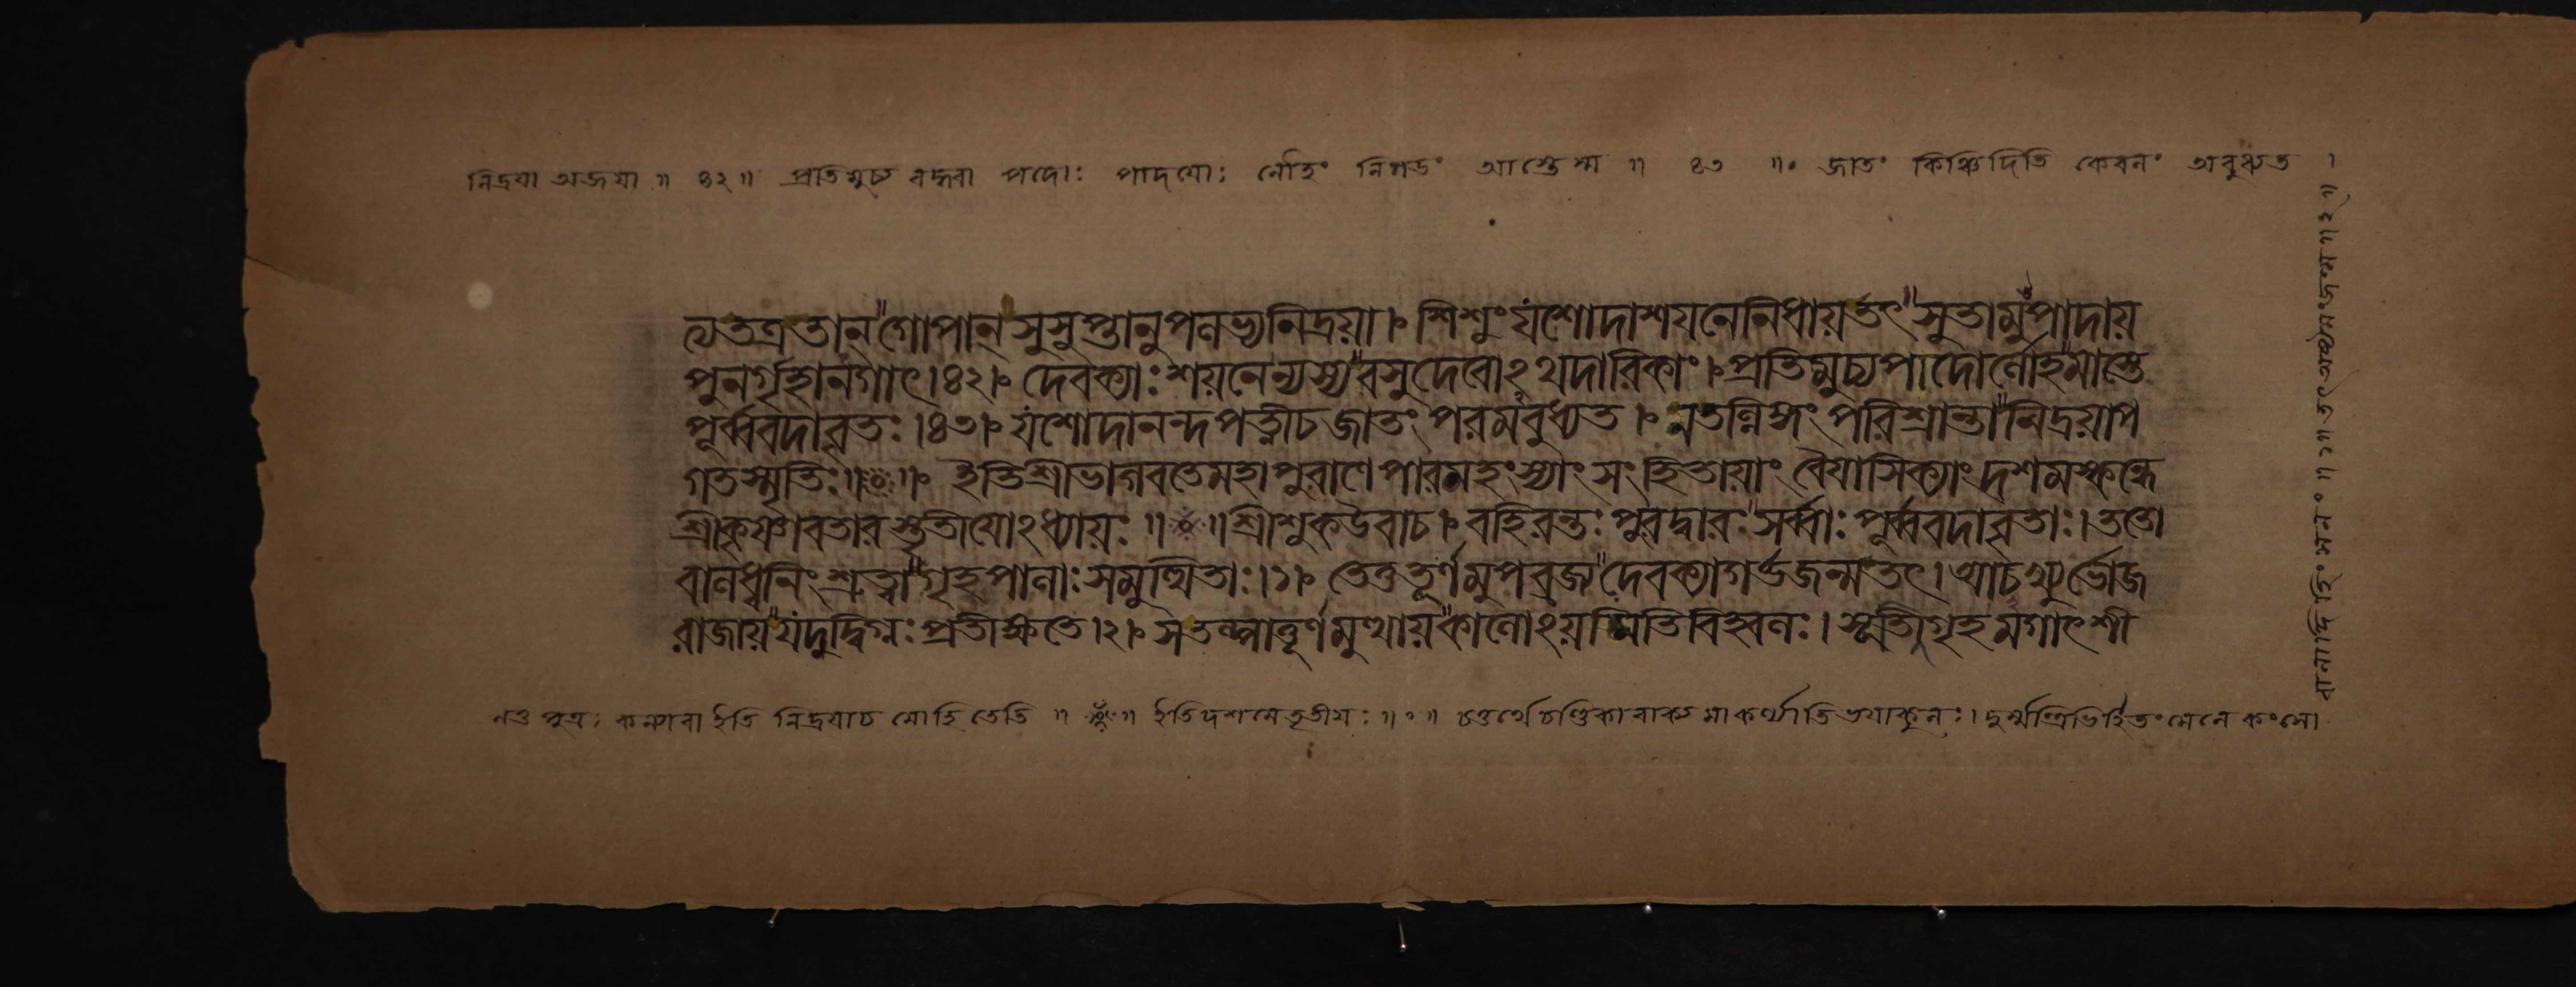 নিদ্রয়া অজয়া ॥ ৪২ ॥ প্রতিমুচ্য বদ্ধ্বা পদোঃ পাদয়োঃ লৌহং নিগড়ং আস্তে স্ম ॥ ৪৩ ॥॰ জাতং কিঞ্চিদিতি কেবলং অবুধ্যত ।
ত্যতত্রতান্গোপান্সুসুপ্তানুপলভ্যনিদ্রয়া। শিশুং যশোদাশয়নেনিধায়তৎসুতামুপাদায়
পুনর্গৃহানগাৎ।৪২। দেবক্যাঃ শয়নেন্যস্যবসুদেবোঽথদারিকাং। প্রতিমুচ্যপাদোর্লৌহমাস্তে
পূর্ব্ববদাবৃতঃ।৪৩। যশোদানন্দপত্নীচজাতং পরমবুধ্যত। নতল্লিঙ্গং পরিশ্রান্তানিদ্রয়াপ
গতস্মৃতিঃ॥০॥ ইতিশ্রীভাগবতেমহাপুরাণেপারমহংস্যাং সংহিতায়াং বৈয়াসিক্যাং দশমস্কন্ধে
শ্রীকৃষ্ণাবতারস্তৃতীয়োঽধ্যায়ঃ ॥ওঁ॥ শ্রীশুকউবাচ। বহিরন্তঃপুরদ্বারঃসর্ব্বাঃ পূর্ব্ববদাবৃতাঃ। ততো
বালধ্বনিং শ্রুত্বাগৃহপালাঃ সমুত্থিতাঃ।১। তেতুতূর্ণমুপব্রজ্যদেবক্যাগর্ভজন্মতৎ। আচখ্যুর্ভোজ
রাজায়যদুদ্বিগ্নঃ প্রতীক্ষতে।২। সতল্পাত্তূর্ণমুত্থায়কালোঽয়মিতিবিহ্বলঃ। সূতীগৃহমগাৎশী
পুত্রঃ কন্যাবা ইতি নিদ্রয়াচ মোহিতেতি ॥ ওঁ ॥ ইতিদশমেতৃতীয়ঃ ॥॰॥ চতুর্থেচণ্ডিকাবাক্যমাকর্ণ্যাতিভয়াকুলঃ। দুর্ম্মন্ত্রিভির্হিতং মেনে কংসো